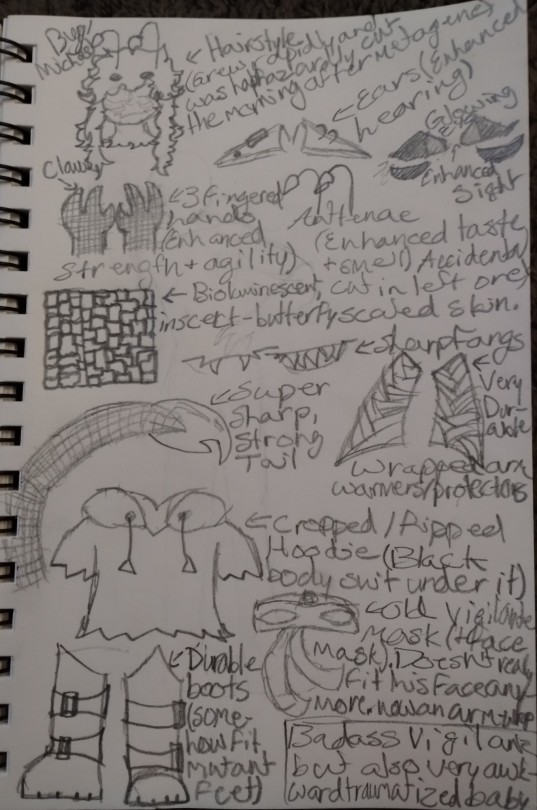 Bug
Michael
← Hairstyle
(Grew rapidly and
was haphazardly cut
the morning after metagene)
← Ears (Enhanced
hearing)
Glowing
Enhanced
Sight
Claws
← 3 fingered
hands
(Enhanced
strength + agility)
Antenae
(Enhanced taste
+ smell) Accidental
cut in left one)
← Bioluminescent,
insect-butterfly scaled skin.
← sharp fangs
← Super
sharp,
strong
Tail
← Very
Dur-
able
Wrapped arm
warmers/protectors
← Cropped / Ripped
Hoodie (Black
body suit under it)
← Old Vigilante
Mask (+ Face
Mask). Doesn't really
fit his face any
more. now an arm wrap
← Durable
boots
(some-
how fit
mutant
feet)
Badass Vigilante
but also very awk-
ward traumatized baby